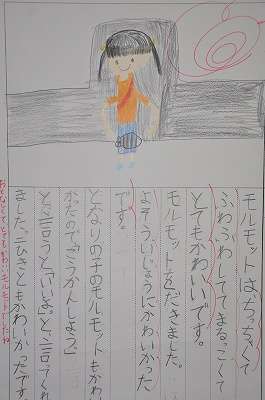 モルモットは、ちっちくて
ふわふわしてて まるっこくて
とてもかわいいです。
モルモットをだきました。
よそういじょうにかわいかった
です。
となりの子のモルモットもかわい
かたので「こうかんしよう。」
と言うと「いいよ。」と言ってくれ
ました。二ひきともかわいかったです。
おとなしくて、とってもかわいいモルモットでしたね